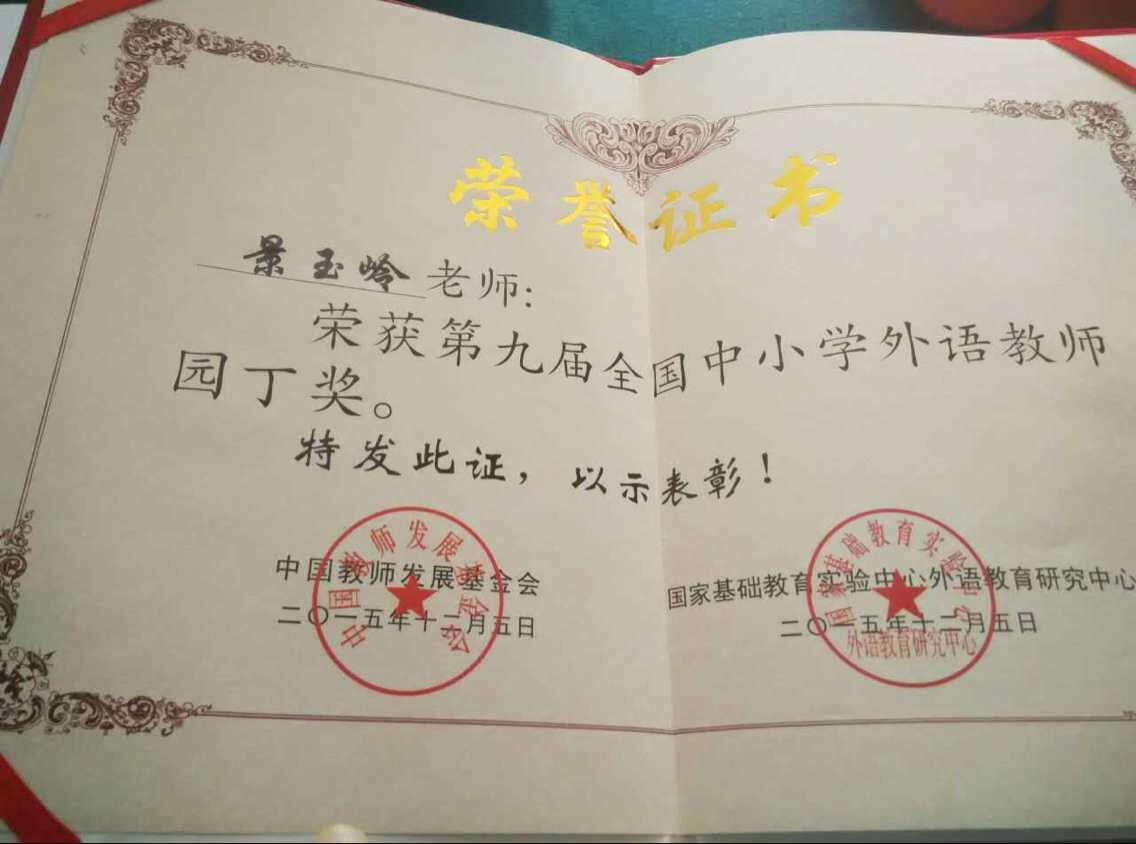 荣誉证书
景玉岭老师:
荣获第九届全国中小学外语教师
园丁奖。
特发此证，以示表彰！
中国教师发展基金会
二〇一五年十二月五日
国家基础教育实验中心外语教育研究中心
二〇一五年十二月五日
中国教师发展基金会
国家基础教育实验中心
外语教育研究中心